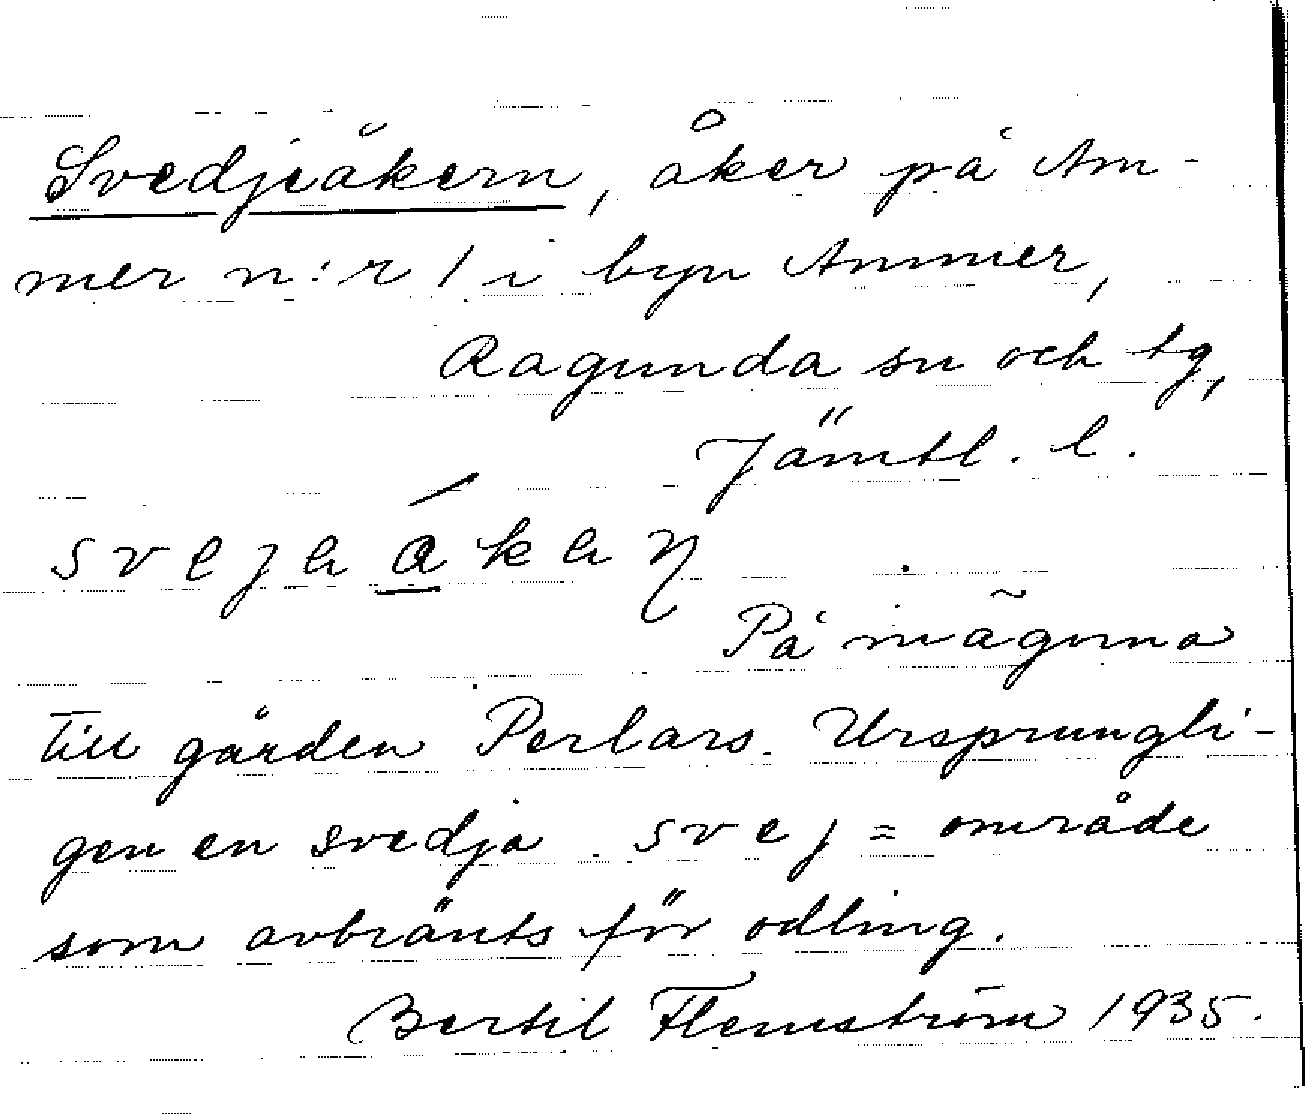 Svedjeåkern, åker på Am-
mer n:r 1 i byn Ammer,
Ragunda sn och tg,
Jämtl. l.
På mägorna
till gården Perlars. Ursprungli-
gen en svedja. svej = område
som avbränts för odling.
Bertil Flemström 1935.